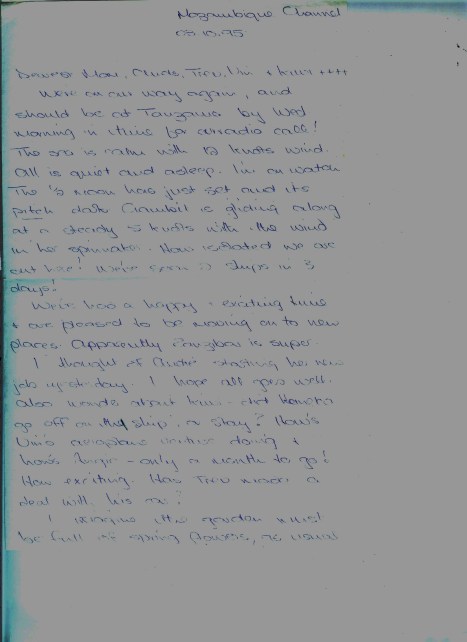 Mozambique Channel
08.10.95
Dearest Mom,
We're on our way again, and
should be at Tanzania by Wed
morning in time for a radio call!
The sea is calm with 12 knots wind.
All is quiet and asleep. I'm on watch
The ½ moon has just set and its
pitch dark is gliding along
at a steady 5 knots with the wind
in her spinnaker. How isolated we are
out here! We've seen 2 ships in 3
days!
We've had a happy + exciting time
+ are pleased to be moving on to new
places. Apparently is super.
I thought of starting her new
job yesterday. I hope all goes well.
Also about
go off on the ship, or stay? How's
doing +
how's - only a month to go!
How exciting. Has Trev made a
deal with his
I imagine the garden must
be full of spring flowers, as usual